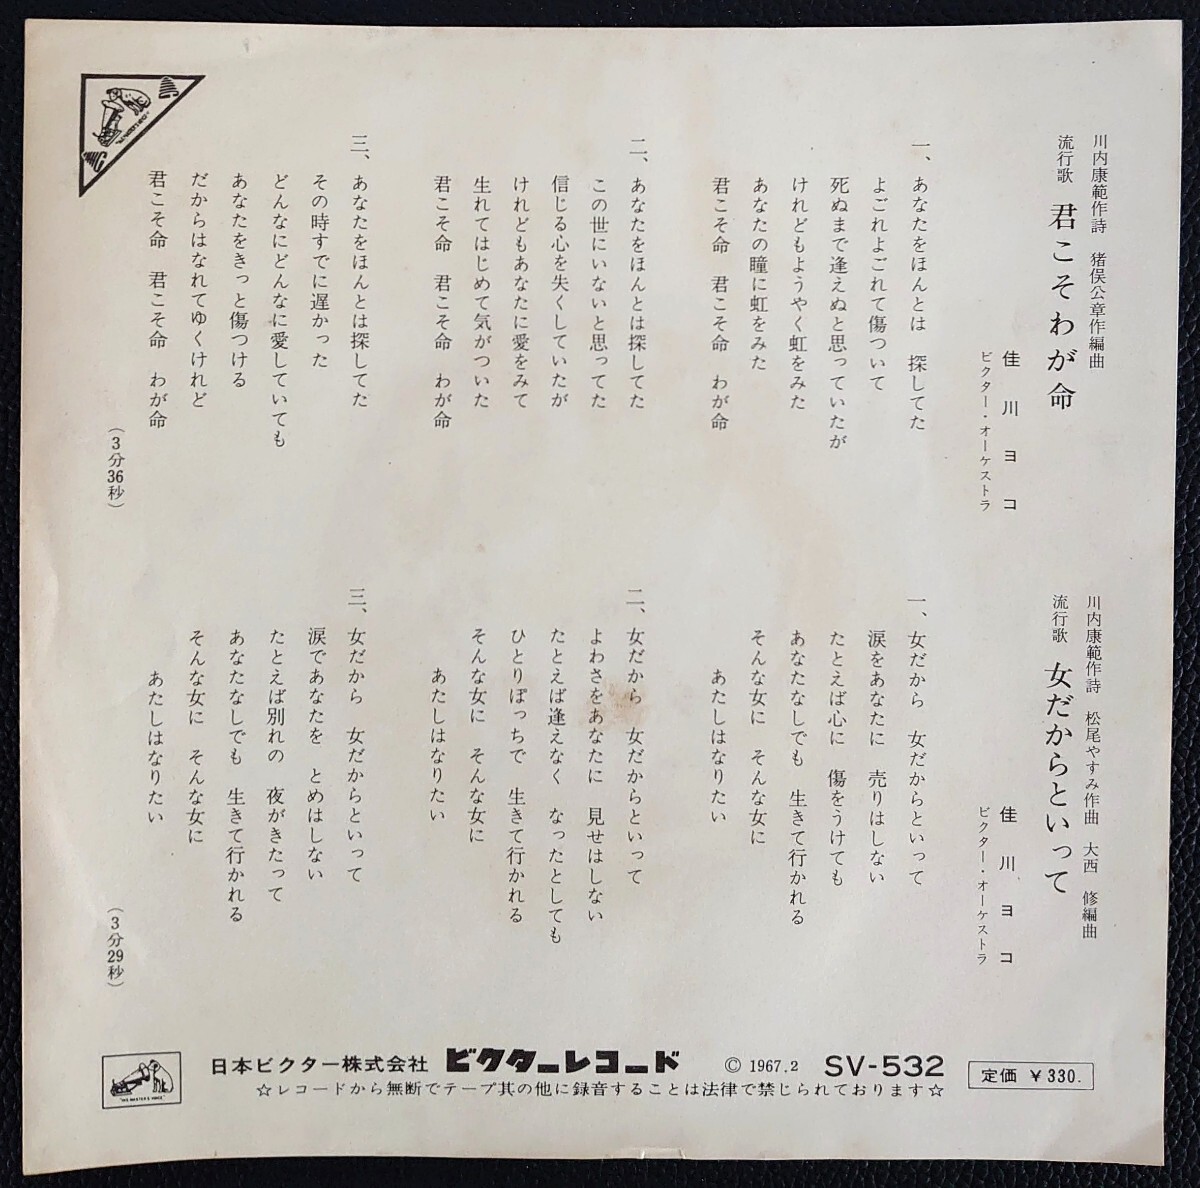 川内康範作詩　猪俣公章作編曲
流行歌　君こそわが命
佳川ヨコ
ビクター・オーケストラ
一、あなたをほんとは　探してた
よごれよごれて傷ついて
死ぬまで逢えぬと思っていたが
けれどもようやく虹をみた
あなたの瞳に虹をみた
君こそ命　君こそ命　わが命
二、あなたをほんとは探してた
この世にいないと思ってた
信じる心を失くしていたが
けれどもあなたに愛をみて
生れてはじめて気がついた
君こそ命　君こそ命　わが命
三、あなたをほんとは探してた
その時すでに遅かった
どんなにどんなに愛していても
あなたをきっと傷つける
だからはなれてゆくけれど
君こそ命　君こそ命　わが命
（3分36秒）
川内康範作詩　松尾やすみ作曲　大西　修編曲
流行歌　女だからといって
佳川ヨコ
ビクター・オーケストラ
一、女だから　女だからといって
涙をあなたに　売りはしない
たとえば心に　傷をうけても
あなたなしでも　生きて行かれる
そんな女に　そんな女に
あたしはなりたい
二、女だから　女だからといって
よわさをあなたに　見せはしない
たとえば逢えなく　なったとしても
ひとりぼっちで　生きて行かれる
そんな女に　そんな女に
あたしはなりたい
三、女だから　女だからといって
涙であなたを　とめはしない
たとえば別れの　夜がきたって
あなたなしでも　生きて行かれる
そんな女に　そんな女に
あたしはなりたい
（3分29秒）
日本ビクター株式会社　ビクターレコード　© 1967.2　SV-532　定価 ￥330.
☆レコードから無断でテープ其の他に録音することは法律で禁じられております☆
"HIS MASTER'S VOICE"